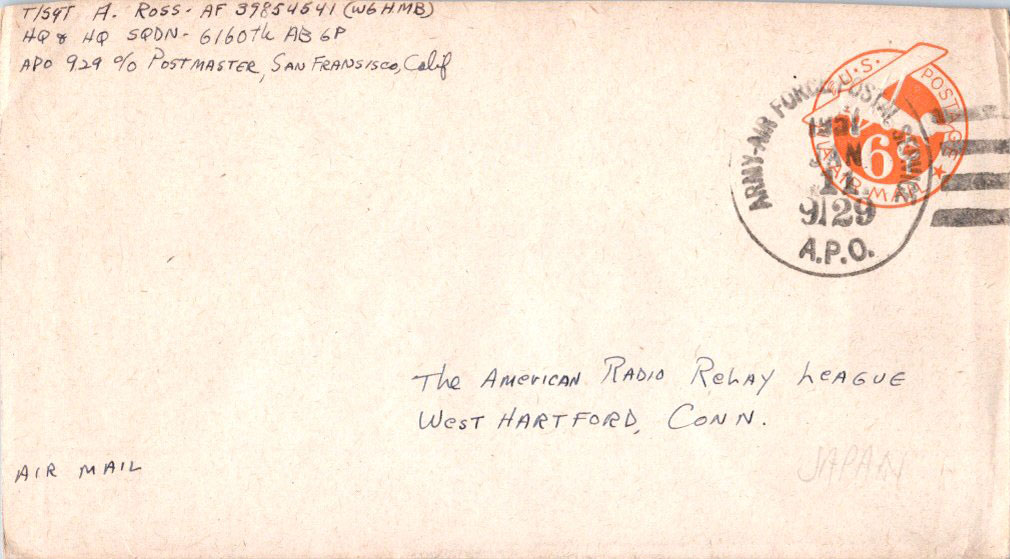 T/SGT A. ROSS - AF 39854541 (W6HMB)
HQ & HQ SQDN - 6160th AB GP
APO 929 c/o POSTMASTER, SAN FRANSISCO, Calif
U.S. POSTAGE
6¢
VIA AIR MAIL
ARMY-AIR FORCE POSTAL SERVICE
1951
JAN
11
9129
A.P.O.
The American Radio Relay League
West Hartford, Conn.
JAPAN
AIR MAIL